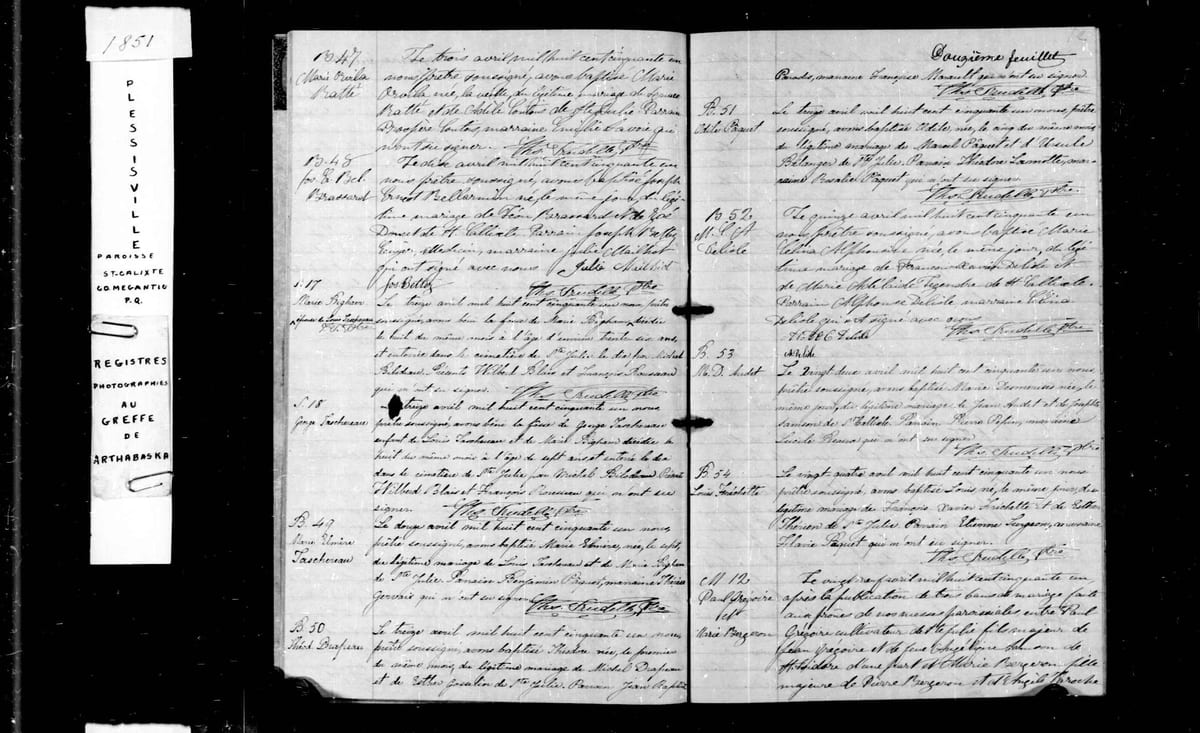 1851
PLESSISVILLE
PAROISSE
ST-CALIXTE
CO. MEGANTIC
P.Q.
REGISTRES
PHOTOGRAPHIÉS
AU
GREFFE
DE
ARTHABASKA
B. 47
Marie
Ratté
Le trois avril mil huit cent cinquante un
nous prêtre soussigné, avons baptisé Marie
née, la veille du légitime mariage de
Ratté et de Adèle Coutons de Ste Julie Parrain
Prospère Coutons, marraine Emilie Savoie qui
n'ont su signer. Ths. Trudelle Ptre
B. 48
Jos. E. Bel.
Brassard
Le dix avril mil huit cent cinquante un
nous prêtre soussigné, avons baptisé Joseph
Ernest Bellarmin né, le même jour, du légi-
time mariage de Léon Brassard et de
de St Calixte Parrain Joseph Bettez
médecin, marraine Julie Mailhot
qui ont signé avec nous Julie Mailhot
Jos Bettez Ths. Trudelle Ptre
S. 17
Marie Bigham
épouse de Louis Taschereau
Le treize avril mil huit cent cinquante un nous, prêtre
soussigné, avons béni la fosse de Marie Bigham, décédée
le huit du même mois à l'âge d'environ trente six ans,
et enterrée dans le cimetière de Ste Julie le dix par Michel
Bilodeau. Présents Wilbrod Blais et François Rousseau
qui n'ont su signer. Ths. Trudelle Ptre
S. 18
George Taschereau
Le treize avril mil huit cent cinquante un nous
prêtre soussigné, avons béni la fosse de George Taschereau
enfant de Louis Taschereau et de Marie Bigham décédé le
huit du même mois à l'âge de sept ans et enterré le dix
dans le cimetière de Ste Julie, par Michel Bilodeau Présents
Wilbrod Blais et François Rousseau qui n'ont su
signer. Ths. Trudelle Ptre
B. 49
Marie Elmire
Taschereau
Le douze avril mil huit cent cinquante un nous,
prêtre soussigné, avons baptisé Marie Elmire, née, le sept,
du légitime mariage de Louis Taschereau et de Marie Bigham
de Ste Julie. Parrain Benjamin marraine
Gervais qui n'ont su signer Ths. Trudelle, Ptre
B. 50
Théod. Drapeau
Le treize avril mil huit cent cinquante un nous
prêtre soussigné, avons baptisé Théodore née, le premier
du même mois, du légitime mariage de Michel Drapeau
et de Esther Gosselin de Ste Julie. Parrain Jean Baptiste
Douzième feuillet
Paradis, marraine Françoise qui n'ont su signer
Ths. Trudelle Ptre
B. 51
Odile Paquet
Le treize avril mil huit cent cinquante un nous prêtre
soussigné, avons baptisé Odile, née, le cinq du même mois
du légitime mariage de Marcel Paquet et d'Ursule
Bélanger de Ste Julie. Parrain Théodore Lamotte, mar-
raine Rosalie Paquet qui n'ont su signer
Ths. Trudelle, Ptre
B. 52
M. C. A
Delisle
Le quinze avril mil huit cent cinquante un
nous prêtre soussigné, avons baptisé Marie
Célina Alphonsine née, le même jour, du légi-
time mariage de François Xavier Delisle et
de Marie Adélaïde Légendre de St Calixte
Parrain Alphonse Delisle marraine Célina
Delisle qui ont signé avec nous
Delisle Ths. Trudelle Ptre
B. 53
M. D. Audet
Le vingt deux avril mil huit cent cinquante un nous,
prêtre soussigné, avons baptisé Marie née, le
même jour, du légitime mariage de Jean Audet et de Josephte
Samson de St Calixte. Parrain Pierre Pépin, marraine
Lucile qui n'ont su signer
Ths. Trudelle, Ptre
B. 54
Louis Fréchette
Le vingt-quatre avril mil huit cent cinquante un nous
prêtre soussigné, avons baptisé Louis né, le même jour, du
légitime mariage de François Xavier Fréchette et de Esther
Therrien de Ste Julie. Parrain Etienne Turgeon, marraine
Flavie Paquet qui n'ont su signer.
Ths. Trudelle, Ptre
M. 12
Paul Grégoire
et
Marie Bergeron
Le vingt neuf avril mil huit cent cinquante un,
après la publication de trois bans de mariage faite
aux prônes de nos messes paroissiales entre Paul
Grégoire cultivateur de Ste Julie fils majeur de
Jean Grégoire et de feue Angélique Samson de
St Isidore d'une part et Marie Bergeron fille
majeure de Pierre Bergeron et d'Angèle Laroche